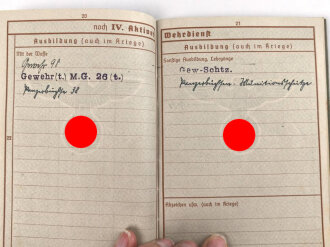 20
noch IV. Aktiver
Ausbildung (auch im Kriege)
Mit der Waffe
Gewehr 98
Gewehr(t.) M.G. 26 (t.)
Panzerbüchse 38
22
21
Wehrdienst
Ausbildung (auch im Kriege)
Sonstige Ausbildung, Lehrgänge
Gew-Schtz.
Panzerbüchsen-Munitionsschütze
Abzeichen usw. (auch im Kriege)